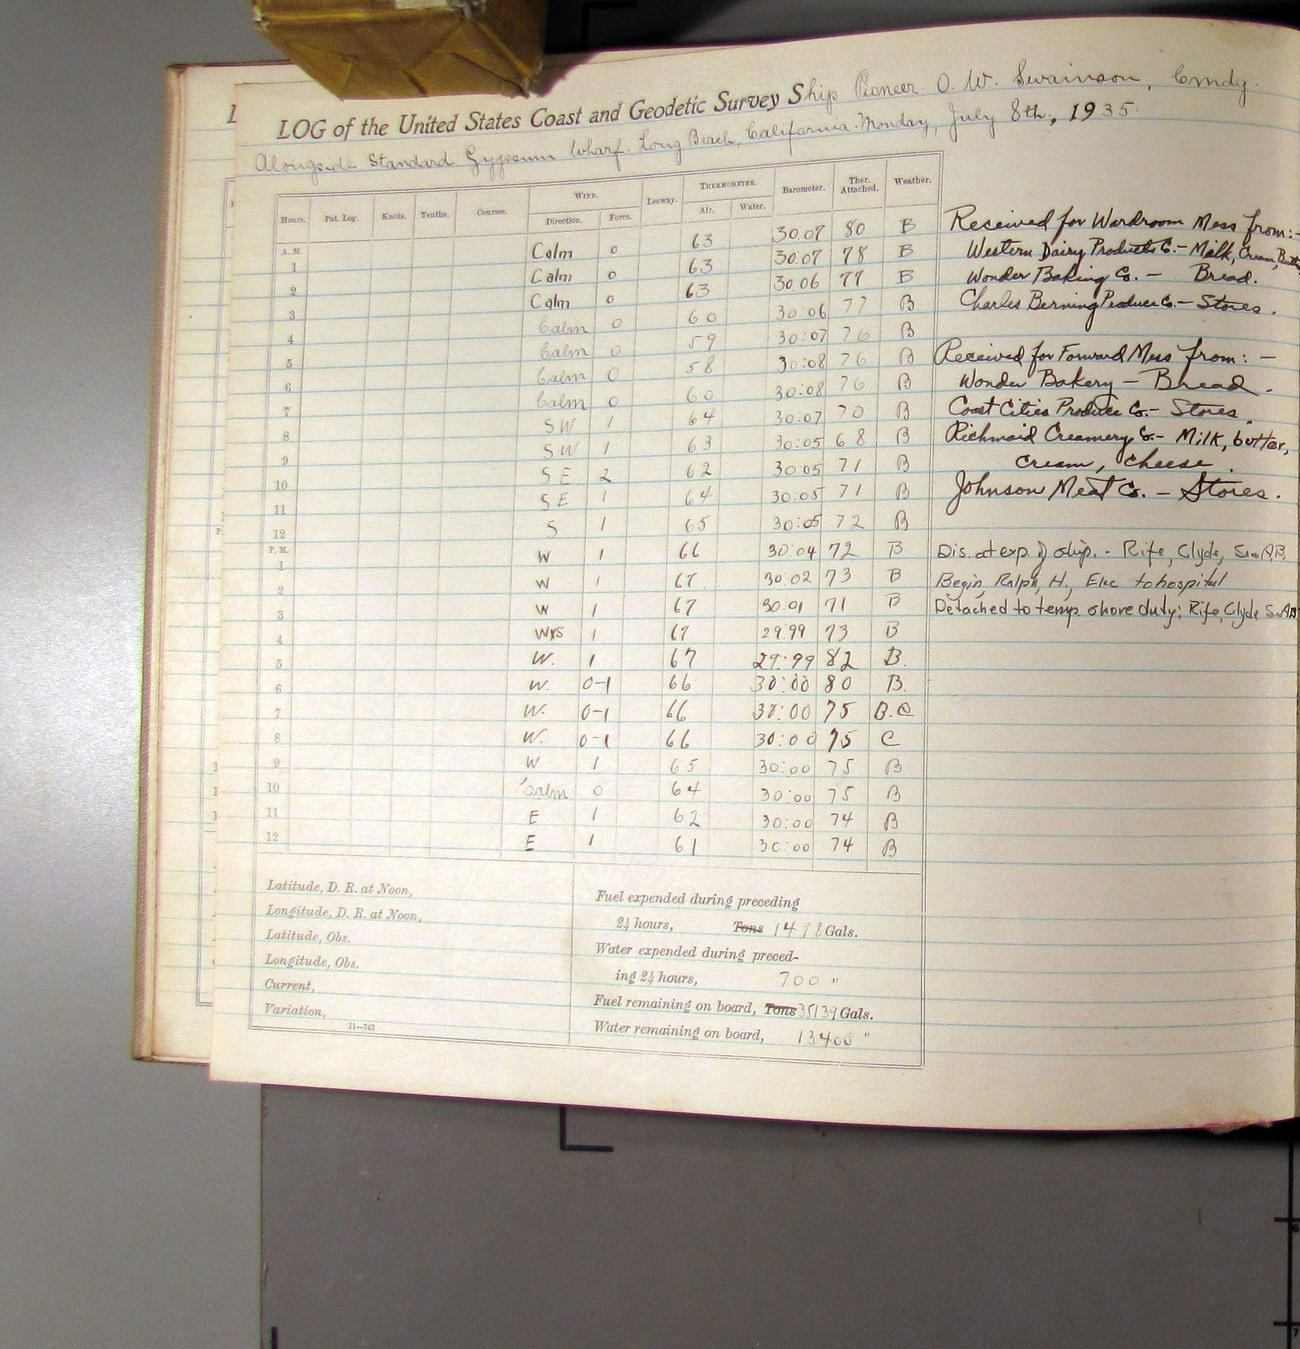 LOG of the United States Coast and Geodetic Survey Ship Pioneer. O. W. Swainson, Cmdg.
Alongside Standard Gypsum Wharf. Long Beach, California. Monday, July 8th., 1935.
Hours. Pat. Log. Knots. Tenths. Courses. WIND. Direction. Force. Leeway. THERMOMETER. Air. Water. Barometer. Ther. Attached. Weather.
A. M.
1 Calm 0 63 30.07 80 B
2 Calm 0 63 30.07 78 B
3 Calm 0 63 30.06 77 B
4 Calm 0 60 30:06 77 B
5 Calm 0 59 30:07 76 B
6 Calm 0 58 30:08 76 B
7 Calm 0 60 30:08 76 B
8 SW 1 64 30:07 70 B
9 SW 1 63 30:05 68 B
10 SE 2 62 30:05 71 B
11 SE 1 64 30:05 71 B
12 S 1 65 30:05 72 B
P. M.
1 W 1 66 30:04 72 B
2 W 1 67 30:02 73 B
3 W 1 67 30.01 71 B
4 WxS 1 67 29.99 73 B
5 W. 1 67 29:99 82 B.
6 W. 0-1 66 30:00 80 B.
7 W. 0-1 66 30:00 75 B.C
8 W. 0-1 66 30:00 75 C
9 W 1 65 30:00 75 B
10 Calm 0 64 30:00 75 B
11 E 1 62 30:00 74 B
12 E 1 61 30:00 74 B
Received for Wardroom Mess from:-
Western Dairy Products Co.- Milk, Cream,
Wonder Baking Co. - Bread.
Charles Berning Produce Co.- Stores.
Received for Forward Mess from: -
Wonder Bakery - Bread.
Coast Cities Produce Co.- Stores.
Richmaid Creamery Co.- Milk, butter,
cream, cheese.
Johnson Meat Co. - Stores.
Dis. at exp. of ship. - Rife, Clyde, Sea AB,
Begin, Ralph, H., Elec to hospital
Detached to temp. shore duty: Rife, Clyde Sea AB
Latitude, D. R. at Noon,
Longitude, D. R. at Noon,
Latitude, Obs.
Longitude, Obs.
Current,
Variation,
11—763
Fuel expended during preceding
24 hours, Tons 1418 Gals.
Water expended during preced-
ing 24 hours, 700 "
Fuel remaining on board, Tons 35139 Gals.
Water remaining on board, 13400 "